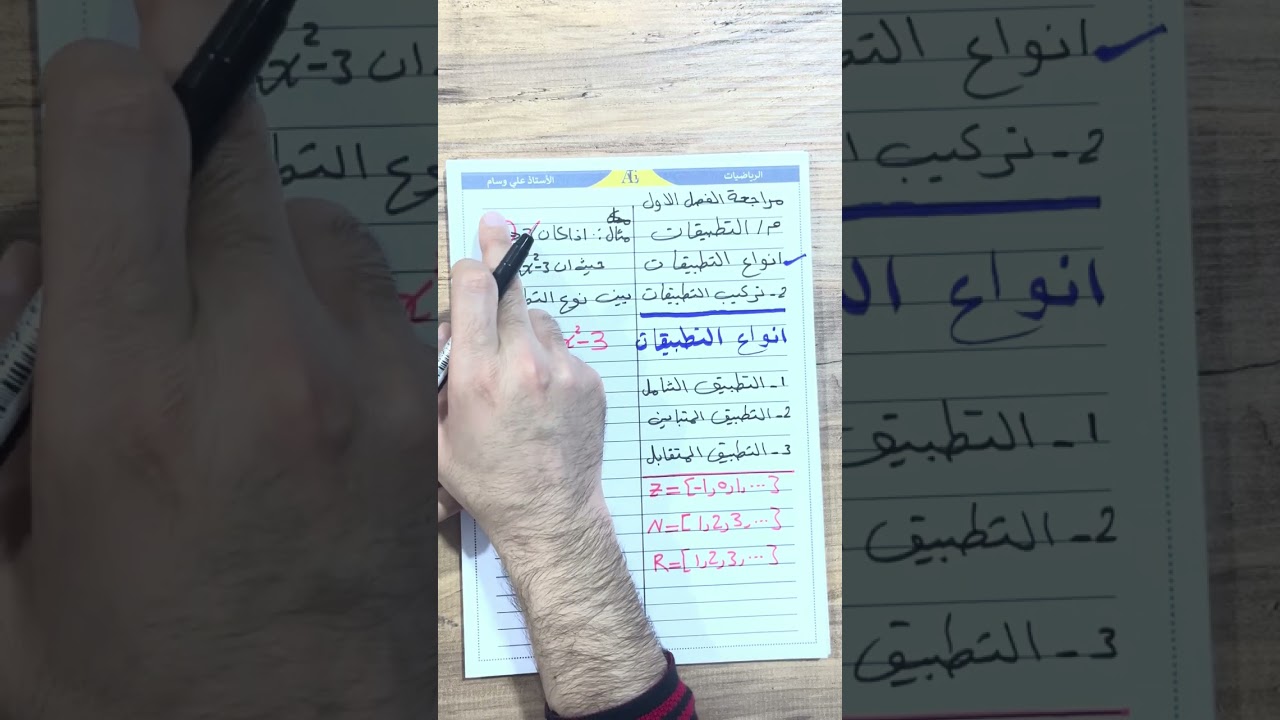 الرياضيات
الأستاذ علي وسام
مراجعة الفصل الاول
م/ التطبيقات
انواع التطبيقات
2- تركيب التطبيقات
انواع التطبيقات
1- التطبيق الشامل
2- التطبيق المتباين
3- التطبيق المتقابل
Z = {-1, 0, 1, ...}
N = {1, 2, 3, ...}
R = {1, 2, 3, ...}
مثال: اذا كان
حيث ان x²-3
بين نوع
x²-3